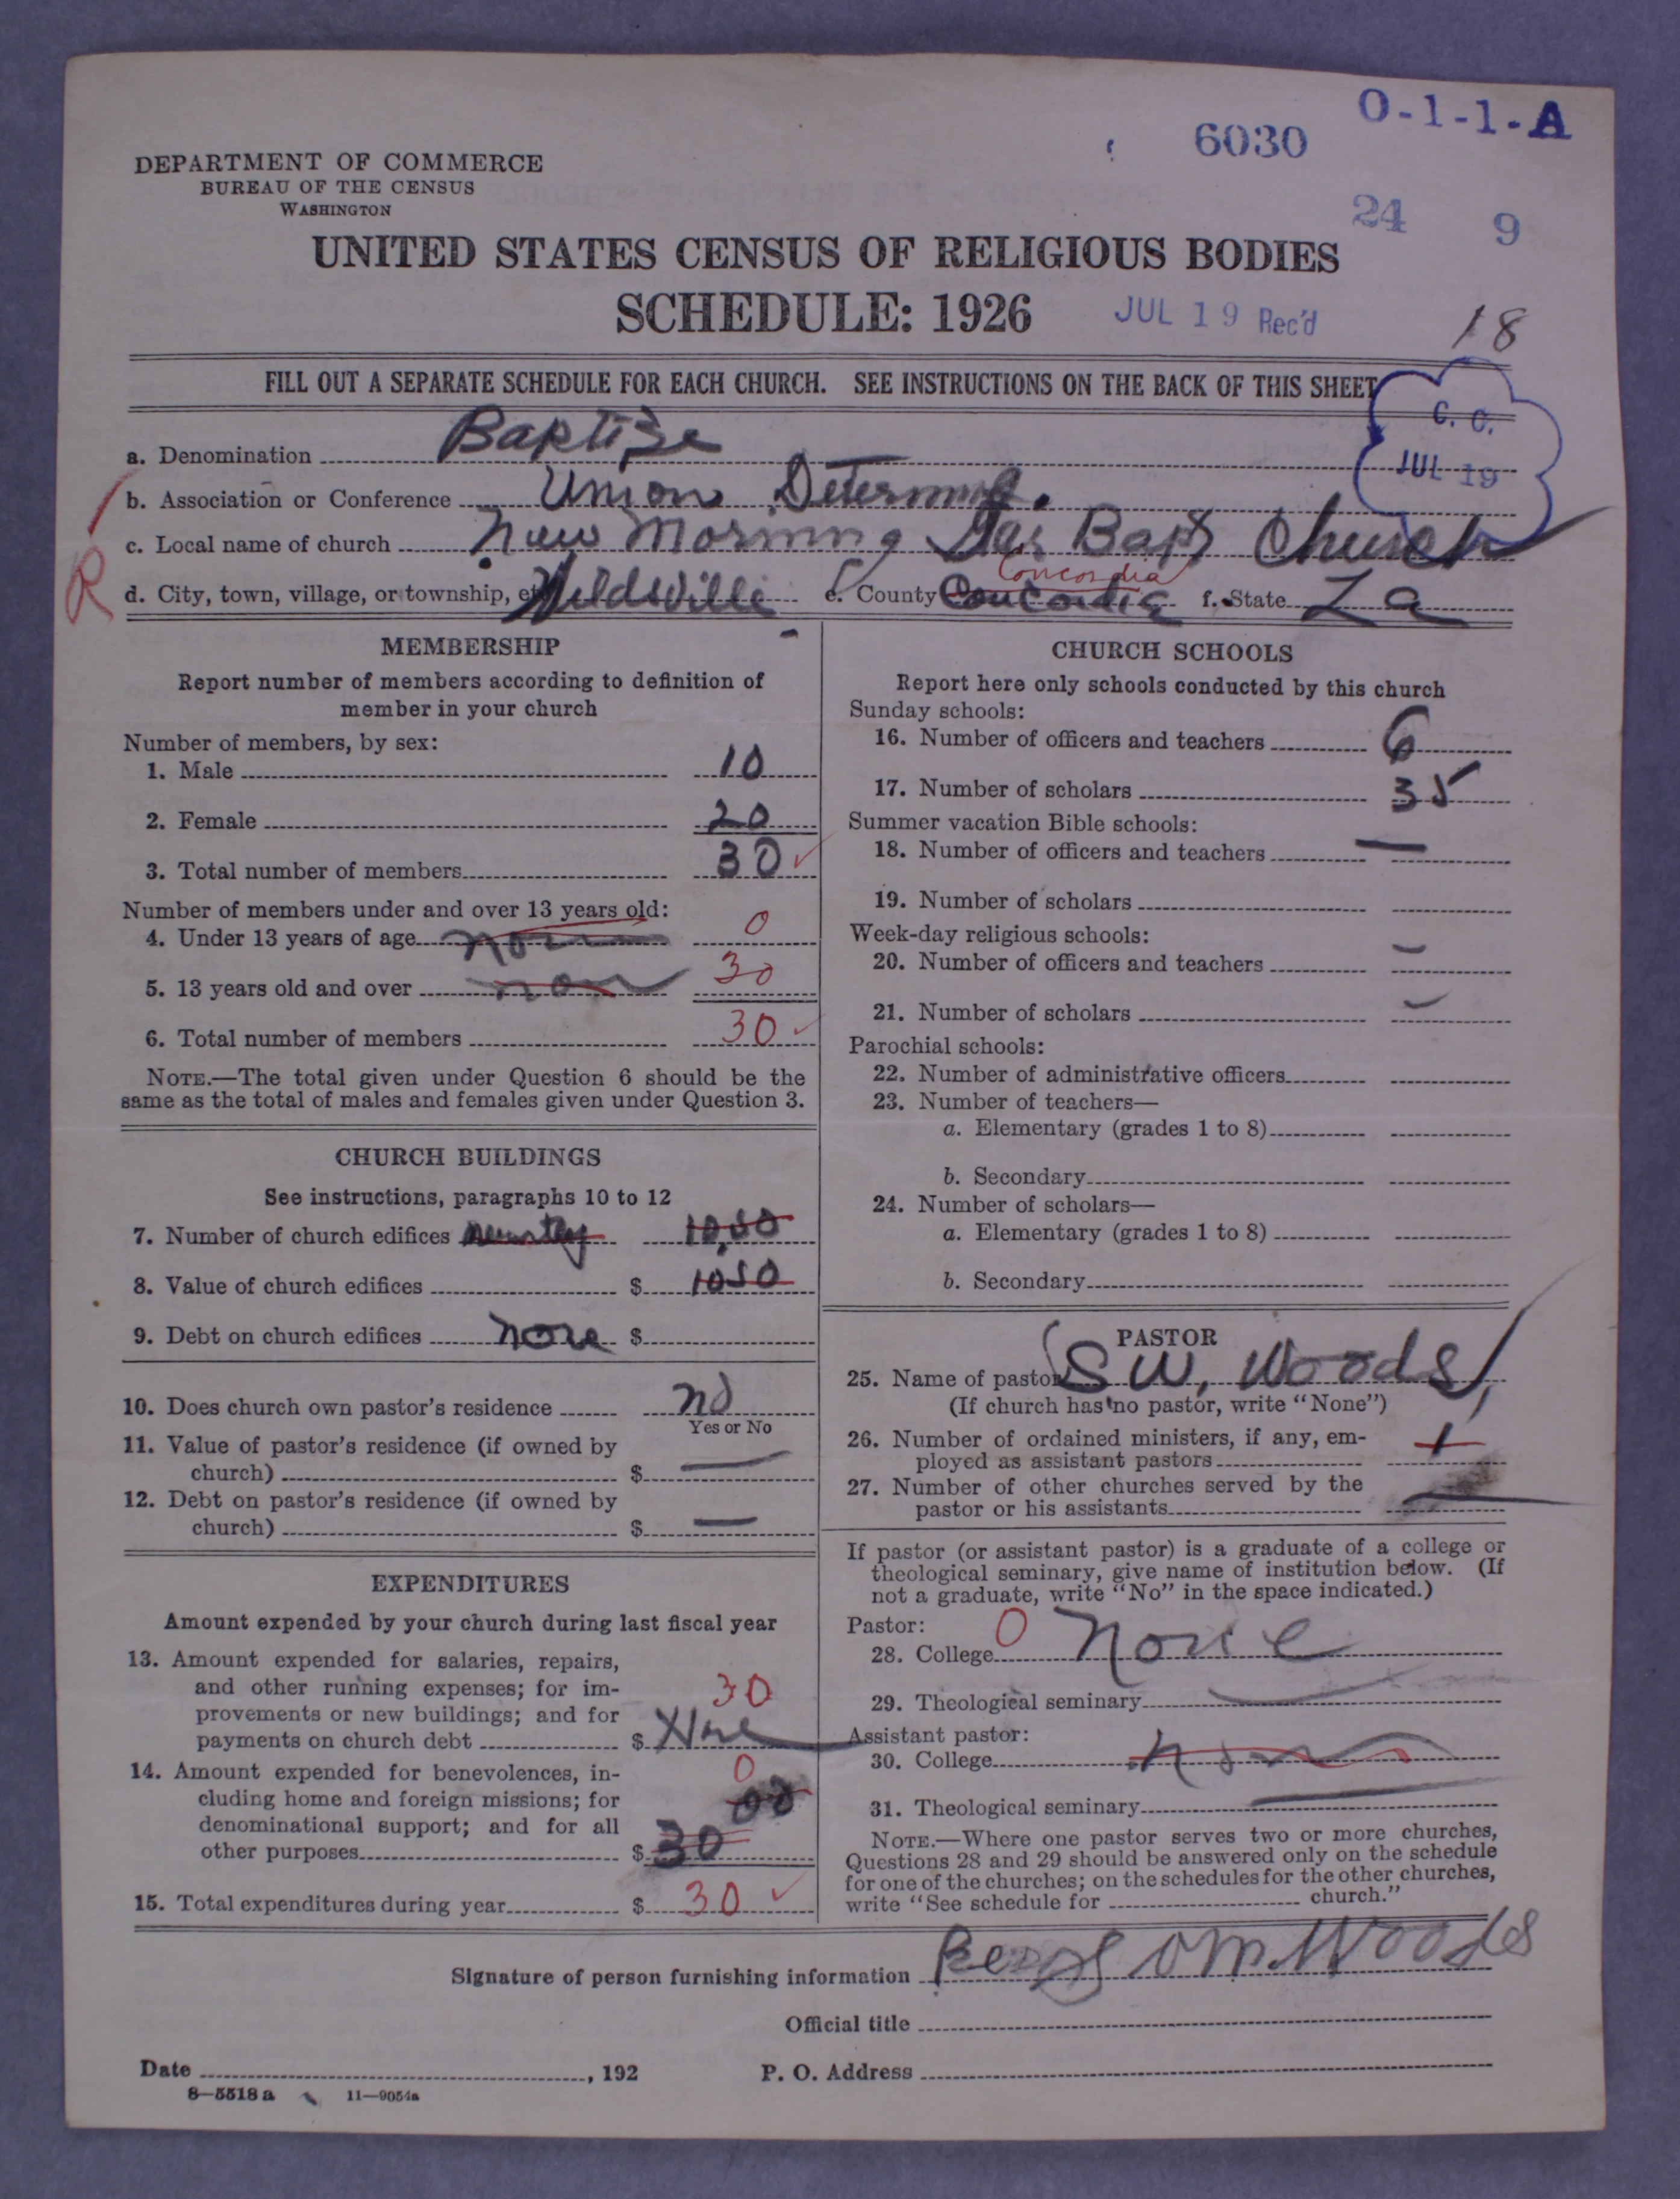 O-1-1-A
6030
24 9
DEPARTMENT OF COMMERCE
BUREAU OF THE CENSUS
WASHINGTON
UNITED STATES CENSUS OF RELIGIOUS BODIES
SCHEDULE: 1926
JUL 19 Rec'd
18
FILL OUT A SEPARATE SCHEDULE FOR EACH CHURCH. SEE INSTRUCTIONS ON THE BACK OF THIS SHEET
C. C.
JUL 19
a. Denomination Baptise
b. Association or Conference Union
R
c. Local name of church New Morning Bapt Church
d. City, town, village, or township, etc. Wildsville e. County Concordia Concordia f. State La
MEMBERSHIP
Report number of members according to definition of
member in your church
Number of members, by sex:
1. Male 10
2. Female 20
3. Total number of members 30 ✓
Number of members under and over 13 years old:
4. Under 13 years of age non 0
5. 13 years old and over non 30
6. Total number of members 30 ✓
NOTE.—The total given under Question 6 should be the
same as the total of males and females given under Question 3.
CHURCH BUILDINGS
See instructions, paragraphs 10 to 12
7. Number of church edifices 10,50
8. Value of church edifices $ 1050
9. Debt on church edifices none $
10. Does church own pastor's residence no
Yes or No
11. Value of pastor's residence (if owned by
church) $ —
12. Debt on pastor's residence (if owned by
church) $ —
EXPENDITURES
Amount expended by your church during last fiscal year
13. Amount expended for salaries, repairs,
and other running expenses; for im-
provements or new buildings; and for
payments on church debt $ 30
14. Amount expended for benevolences, in-
cluding home and foreign missions; for
denominational support; and for all
other purposes $ 30 00 0
15. Total expenditures during year $ 30 ✓
CHURCH SCHOOLS
Report here only schools conducted by this church
Sunday schools:
16. Number of officers and teachers 6
17. Number of scholars 35
Summer vacation Bible schools:
18. Number of officers and teachers —
19. Number of scholars
Week-day religious schools:
20. Number of officers and teachers —
21. Number of scholars —
Parochial schools:
22. Number of administrative officers
23. Number of teachers—
a. Elementary (grades 1 to 8)
b. Secondary
24. Number of scholars—
a. Elementary (grades 1 to 8)
b. Secondary
PASTOR
25. Name of pastor S.W. Woods
(If church has no pastor, write "None")
26. Number of ordained ministers, if any, em-
ployed as assistant pastors 1
27. Number of other churches served by the
pastor or his assistants —
If pastor (or assistant pastor) is a graduate of a college or
theological seminary, give name of institution below. (If
not a graduate, write "No" in the space indicated.)
Pastor:
28. College 0 none
29. Theological seminary —
Assistant pastor:
30. College non
31. Theological seminary —
NOTE.—Where one pastor serves two or more churches,
Questions 28 and 29 should be answered only on the schedule
for one of the churches; on the schedules for the other churches,
write "See schedule for church."
Signature of person furnishing information Woods
Official title
Date , 192 P. O. Address
8—5518 a 11—9054a